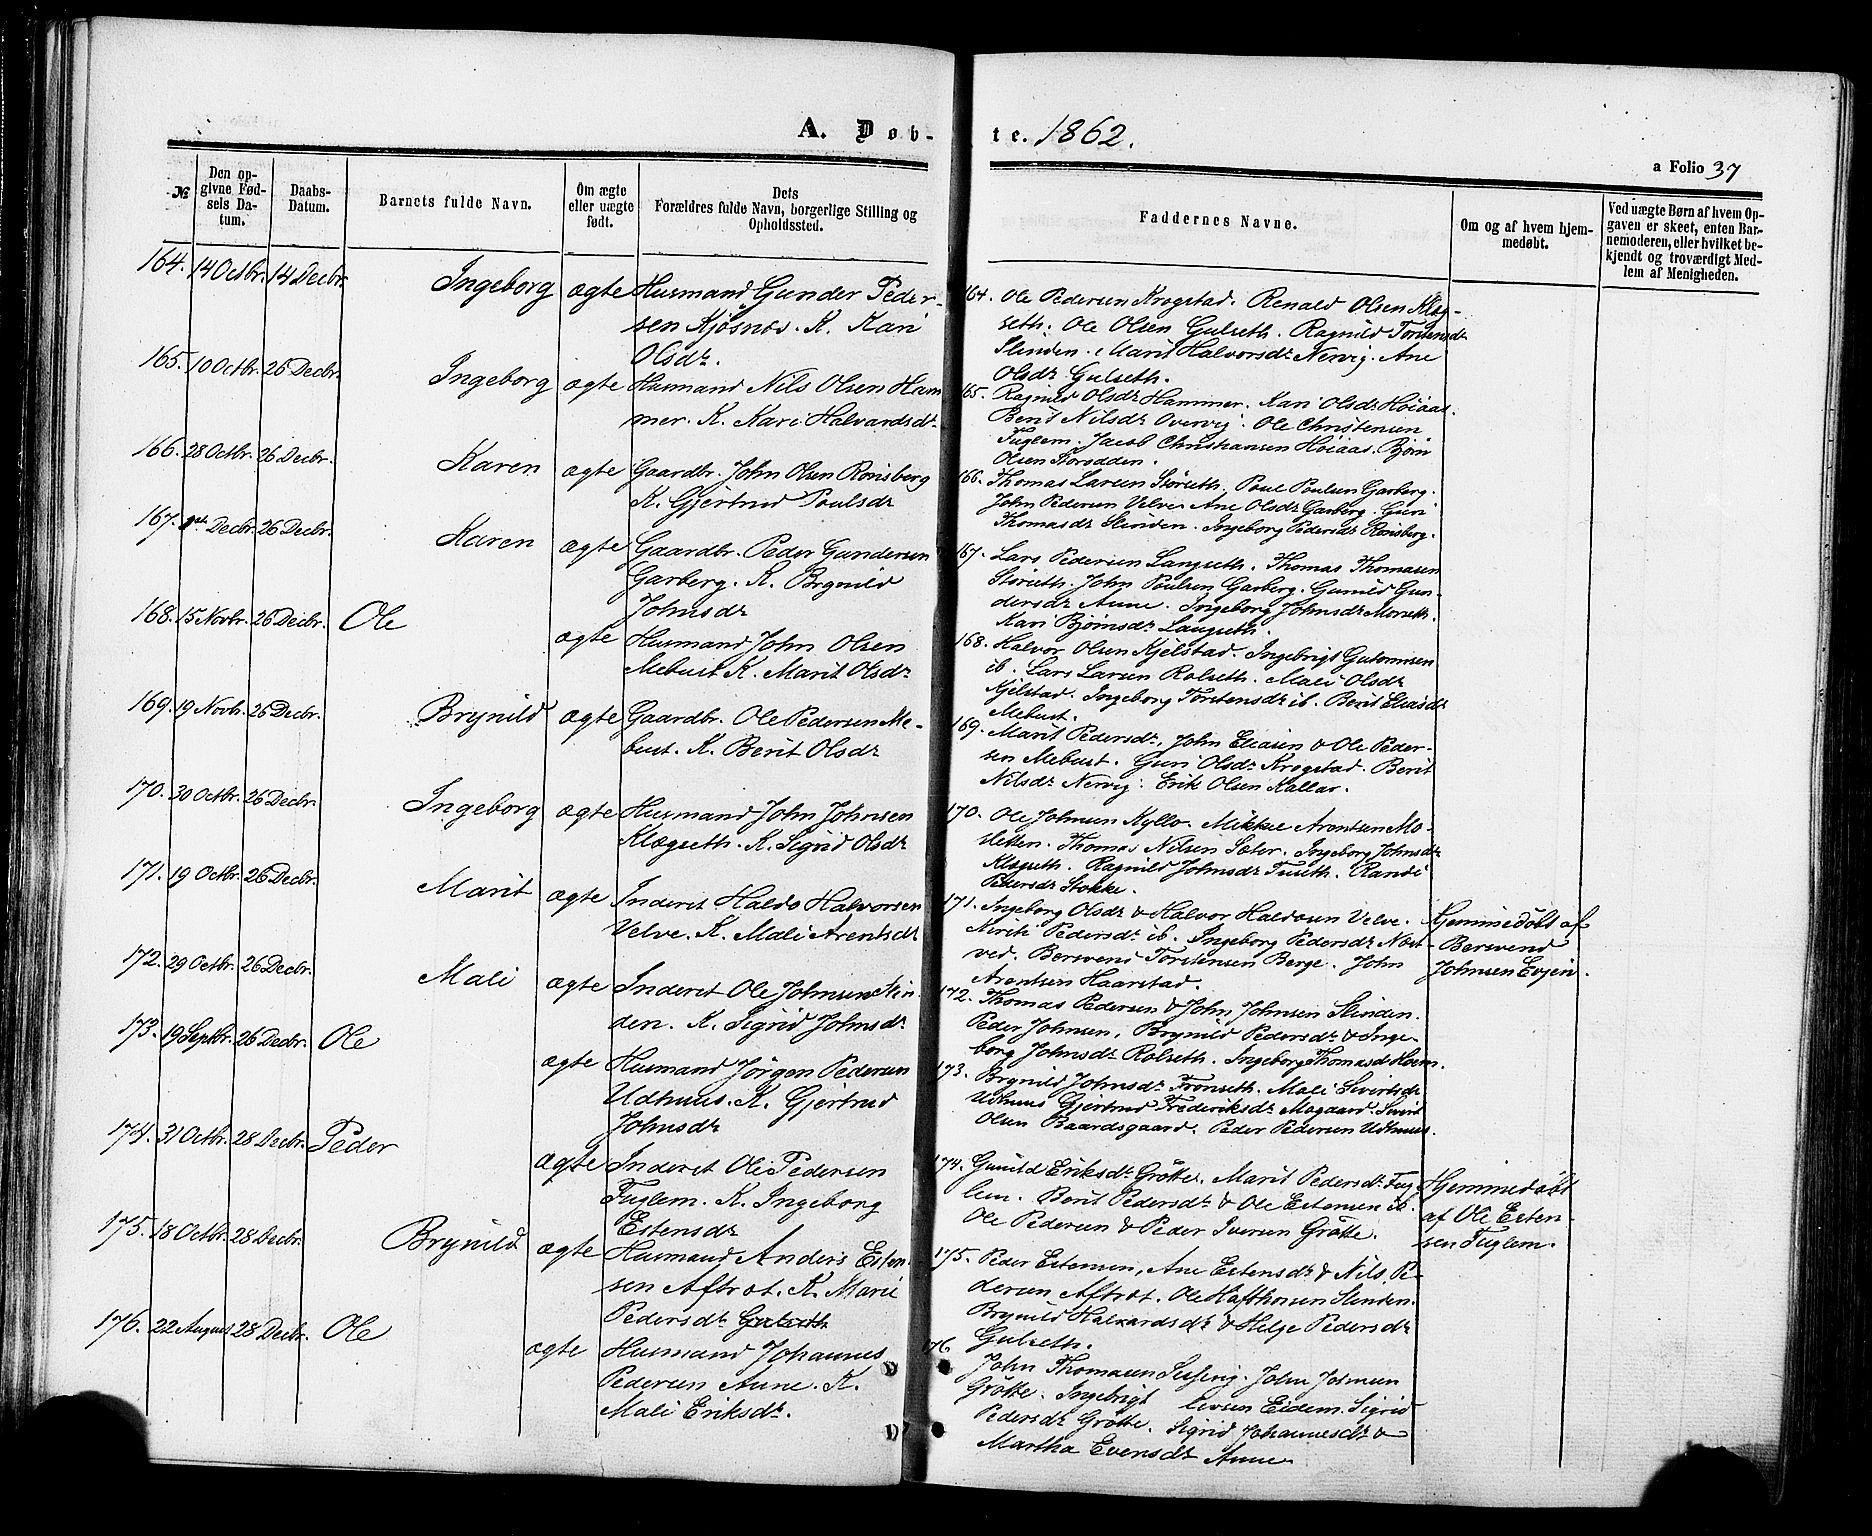 A. Døb-te. 1862.
a Folio 37
№
Den opgivne Fødsels Datum.
Daabs-Datum.
Barnets fulde Navn.
Om ægte eller uægte født.
Dets Forældres fulde Navn, borgerlige Stilling og Opholdssted.
Faddernes Navne.
Om og af hvem hjemmedøbt.
Ved uægte Børn af hvem Opgaven er skeet, enten Barnemoderen, eller hvilket bekjendt og troværdigt Medlem af Menigheden.
164. 14 Octbr. 14 Decbr. Ingeborg ægte Husmand Gunder Peder-
sen Kjøsnæs. K. Kari
Olsdr.
165. 10 Octbr. 26 Decbr. Ingeborg ægte Husmand Nils Olsen Ham-
mer. K. Kari Halvardsdr
166. 28 Octbr. 26 Decbr. Karen ægte Gaardbr. John Olsen Rønsberg
K. Gjertrud Poulsdr
167. 1st Decbr. 26 Decbr. Karen ægte Gaardbr. Peder Gundersen
Garberg. K. Brynild
Johnsdr
168. 15 Novbr. 26 Decbr. Ole ægte Husmand John Olsen
Mebust K. Marit Olsdr
169. 19 Novbr. 26 Decbr. Brynild ægte Gaardbr. Ole Pedersen Me-
bust. K. Berit Olsdr
170. 30 Octbr. 26 Decbr. Ingeborg ægte Husmand John Johnsen
Klægseth. K. Sigrid Olsdr
171. 19 Octbr. 26 Decbr. Marit ægte Inderst Haldo Halvorsen
Velve. K. Mali Arentsdr
172. 29 Octbr. 26 Decbr. Mali ægte Inderst Ole Johnsen Slin-
den. K. Sigrid Johnsdr
173. 19 Septbr. 26 Decbr. Ole ægte Husmand Jörgen Pedersen
Udhuus. K. Gjertrud
Johnsdr
174. 31 Octbr. 28 Decbr. Peder ægte Inderst Ole Pedersen
Fuglem. K. Ingeborg
Estensdr
175. 18 Octbr. 28 Decbr. Brynild ægte Husmand Anders Esten-
sen Aftrøt. K. Marie
Pedersdr
176. 22 August 28 Decbr. Ole ægte Husmand Johannes
Pedersen Aune. K.
Mali Eriksdr.
164. Ole Pedersen Krogstad. Renald Olsen Klæg-
seth. Ole Olsen Gulseth. Ragnild Torstensdr
Slinden. Marit Halvorsdr Nervig. Ane
Olsdr Gulseth.
165. Ragnild Olsdr Hammer. Kari Olsdr Høiaas.
Berit Nilsdr Overvig. Ole Christensen
Fuglem. Jacob Christiansen Høiaas. Bjørn
Olsen Storødden.
166. Thomas Larsen Størseth. Poul Poulsen Garberg.
John Pedersen Velve. Ane Olsdr Garberg. Guri
Thomasdr Slinden. Ingeborg Pedersdr Rønsberg.
167. Lars Pedersen Langseth. Thomas Thomasen
Størseth. John Poulsen Garberg. Gunild Gun-
dersdr Aune. Ingeborg Johnsdr Morseth.
Kari Bjørnsdr Langseth.
168. Halvor Olsen Kjelstad. Ingebrigt Guttormsen
ib. Lars Larsen Rolseth. Mali Olsdr
Kjelstad. Ingeborg Torstensdr ib. Berit Eliasdr
Mebust.
169. Marit Pedersdr, John Eliasen & Ole Peder-
sen Mebust. Guri Olsdr Krogstad. Berit
Nilsdr Nervig. Erik Olsen Kallar.
170. Ole Johnsen Kyllo. Mikkel Arentsen Mo-
sletten. Thomas Nilsen Sæter. Ingeborg Johnsdr
Klægseth. Ragnild Johnsdr Tuseth. Randi
Pedersdr Stokke.
171. Ingeborg Olsdr & Halvor Haldosen Velve.
Kjersti Pedersdr ib. Ingeborg Pedersdr Næst-
ved. Bersvend Torstensen Berge. John
Arentsen Haarstad.
Hjemmedøbt af
Bersvend
Johnsen Evjen.
172. Thomas Pedersen & John Johnsen Slinden.
Peder Johnsen, Brynild Pedersdr & Inge-
borg Johnsdr Rolseth. Ingeborg Thomasdr Moem.
173. Brynild Johnsdr Trønseth. Mali Sivertsdr
Udhuus Gjertrud Frederiksdr Mogaard. Sivert
Olsen Baardsgaard. Peder Pedersen Udhuus.
174. Gunild Eriksdr Grøtte. Marit Pedersdr Fug-
lem. Berit Pedersdr & Ole Estensen ib.
Ole Pedersen & Peder Iversen Grøtte.
Hjemmedøbt
af Ole Esten-
sen Fuglem.
175. Peder Estensen, Ane Estensdr & Nils Pe-
dersen Aftrøt. Ole Hafthorsen Slinden.
Brynild Halvardsdr & Helge Pedersdr
Gulseth.
176. John Thomasen Sesseng. John Johnsen
Grøtte. Ingebrigt Iversen Eidem. Sigrid
Pedersdr Grøtte. Sigrid Johannesdr &
Martha Evensdr Aune